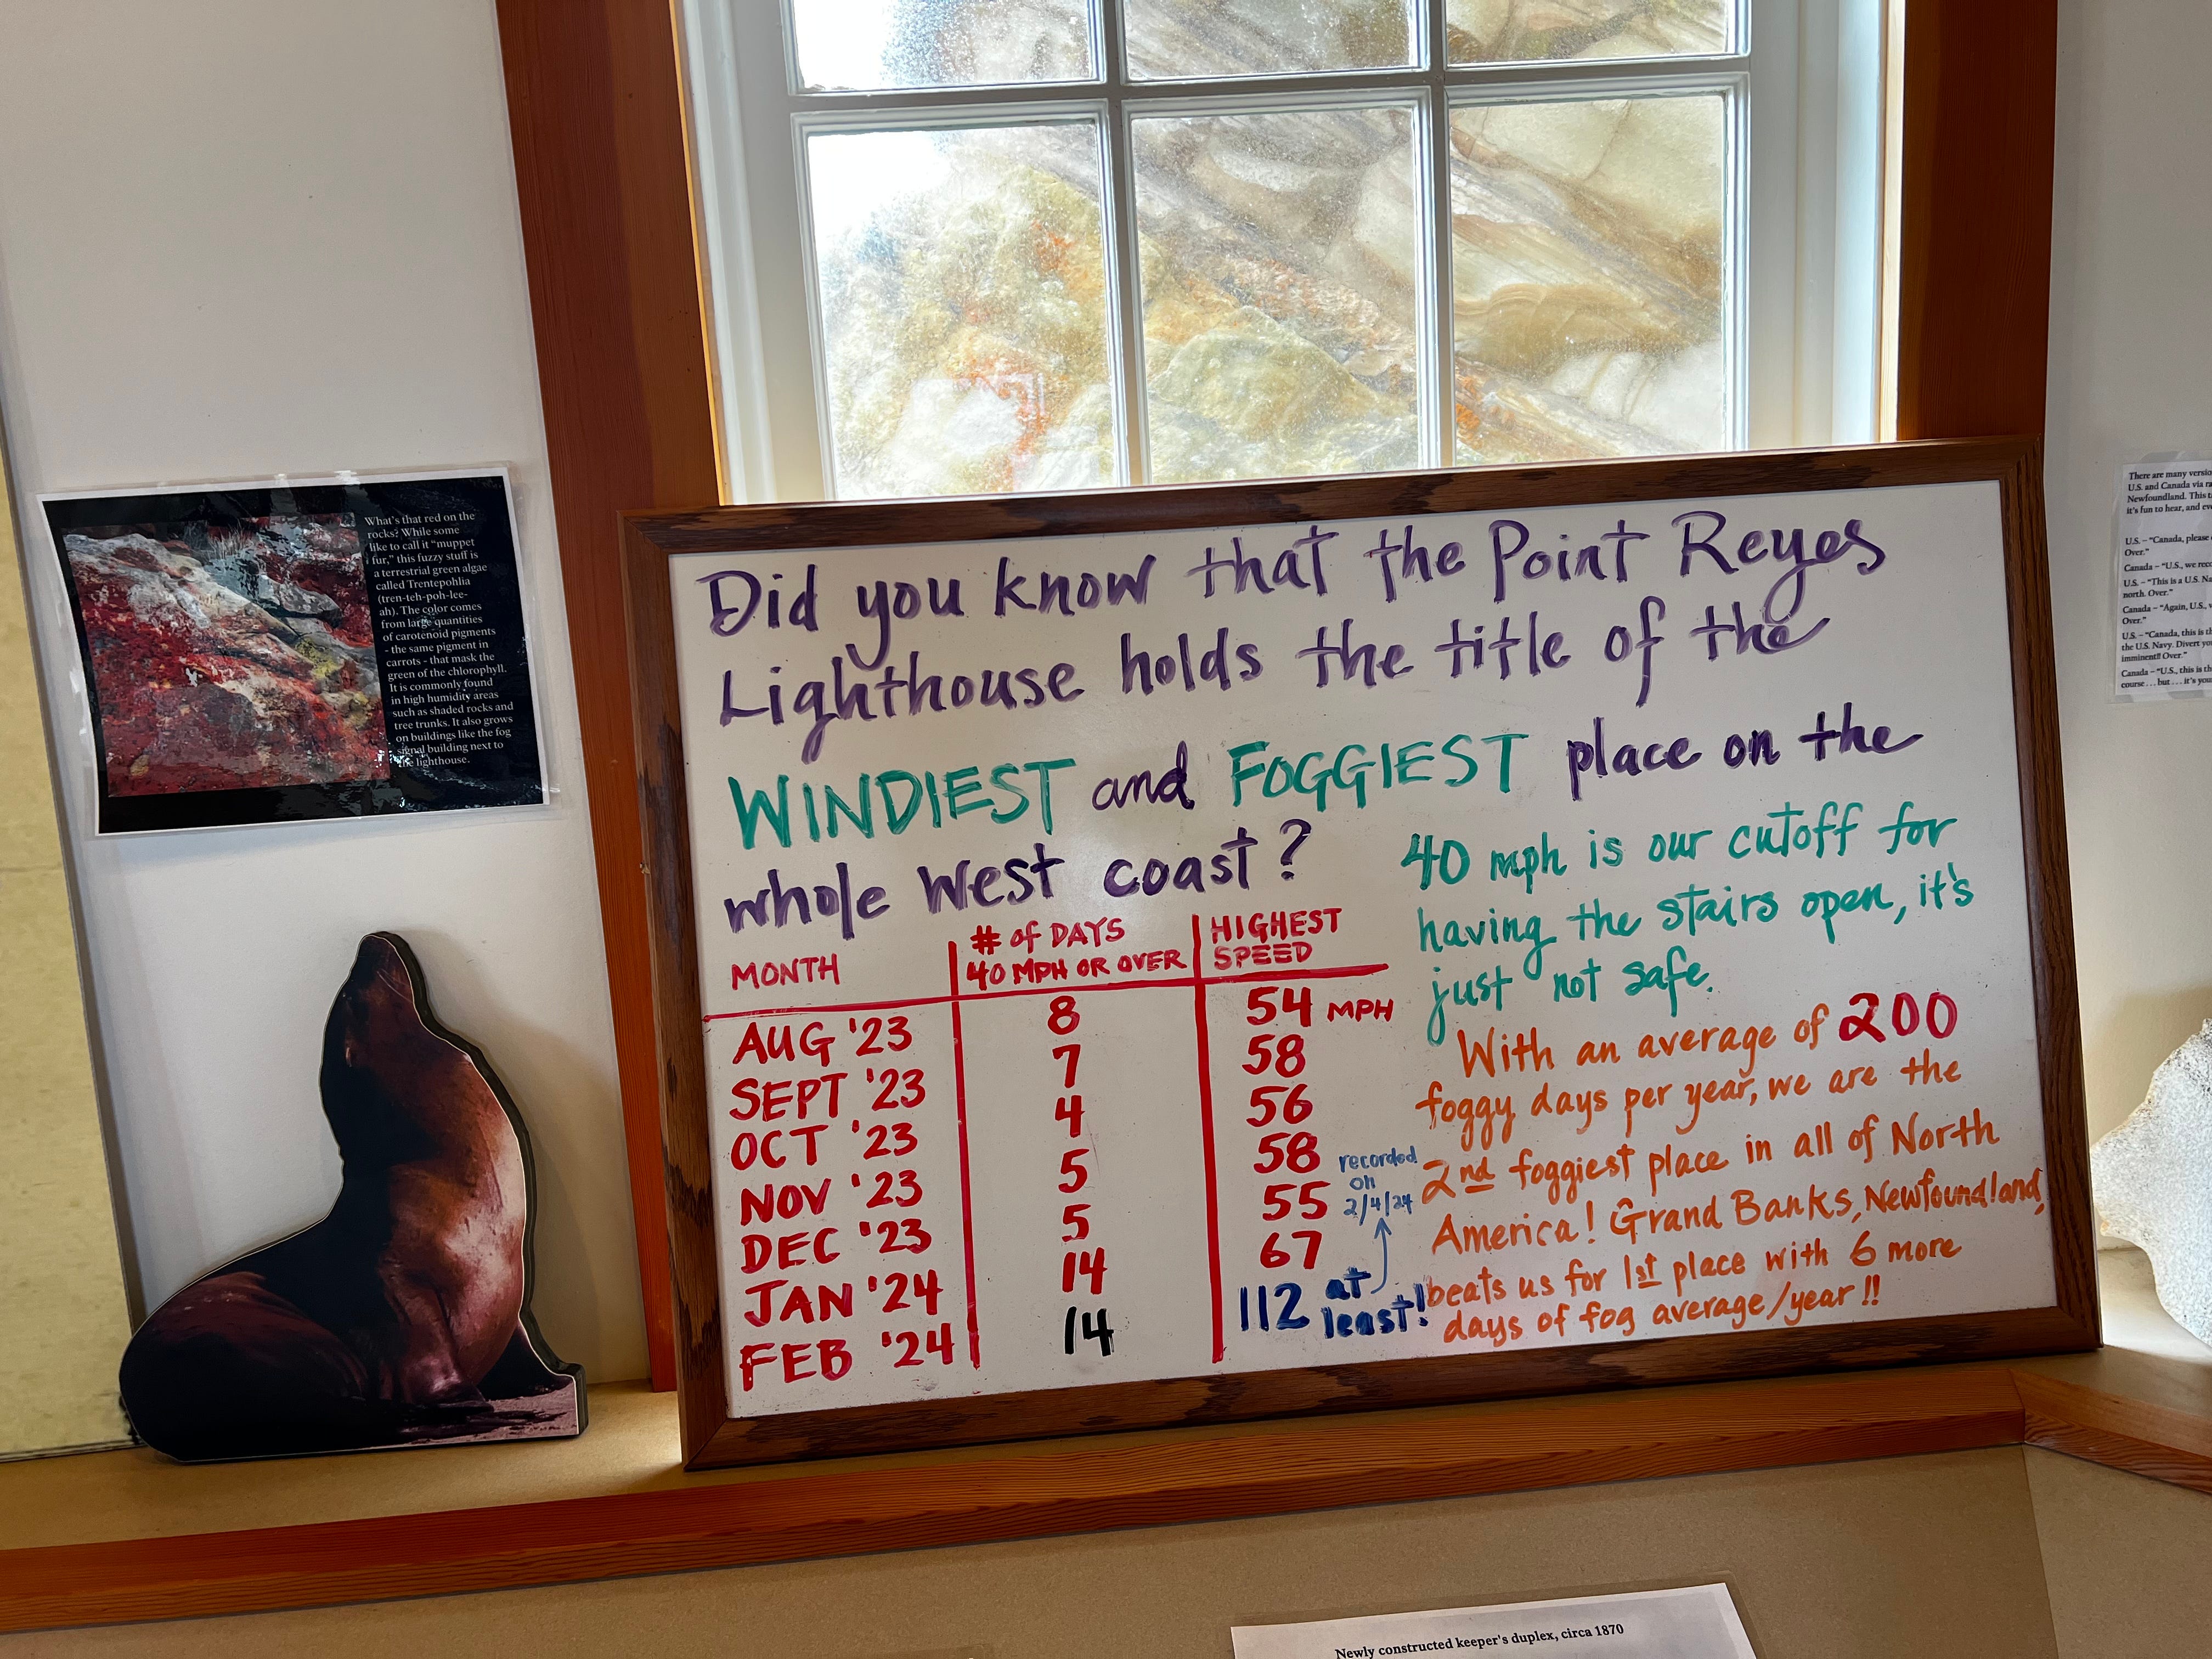 What's that red on the
rocks? While some
like to call it "muppet
fur," this fuzzy stuff is
a terrestrial green algae
called Trentepohlia
(tren-teh-poh-lee-
ah). The color comes
from large quantities
of carotenoid pigments
- the same pigment in
carrots - that mask the
green of the chlorophyll.
It is commonly found
in high humidity areas
such as shaded rocks and
tree trunks. It also grows
on buildings like the fog
signal building next to
the lighthouse.
Did you know that the Point Reyes
Lighthouse holds the title of the
WINDIEST and FOGGIEST place on the
whole West coast?
MONTH # of DAYS 40 MPH OR OVER HIGHEST SPEED
AUG '23 8 54 MPH
SEPT '23 7 58
OCT '23 4 56
NOV '23 5 58
DEC '23 5 55
JAN '24 14 67
FEB '24 14 112 at least!
recorded
on
2/4/24
40 mph is our cutoff for
having the stairs open, it's
just not safe.
With an average of 200
foggy days per year, we are the
2nd foggiest place in all of North
America! Grand Banks, Newfoundland,
beats us for 1st place with 6 more
days of fog average/year!!
There are many versio
U.S. and Canada via ra
Newfoundland. This t
it's fun to hear, and ev
U.S. – "Canada, please
Over."
Canada – "U.S., we rec
U.S. – "This is a U.S. Na
north. Over."
Canada – "Again, U.S.,
Over."
U.S. – "Canada, this is th
the U.S. Navy. Divert you
imminent!! Over."
Canada – "U.S., this is th
course . . . but . . . it's you
Newly constructed keeper's duplex, circa 1870